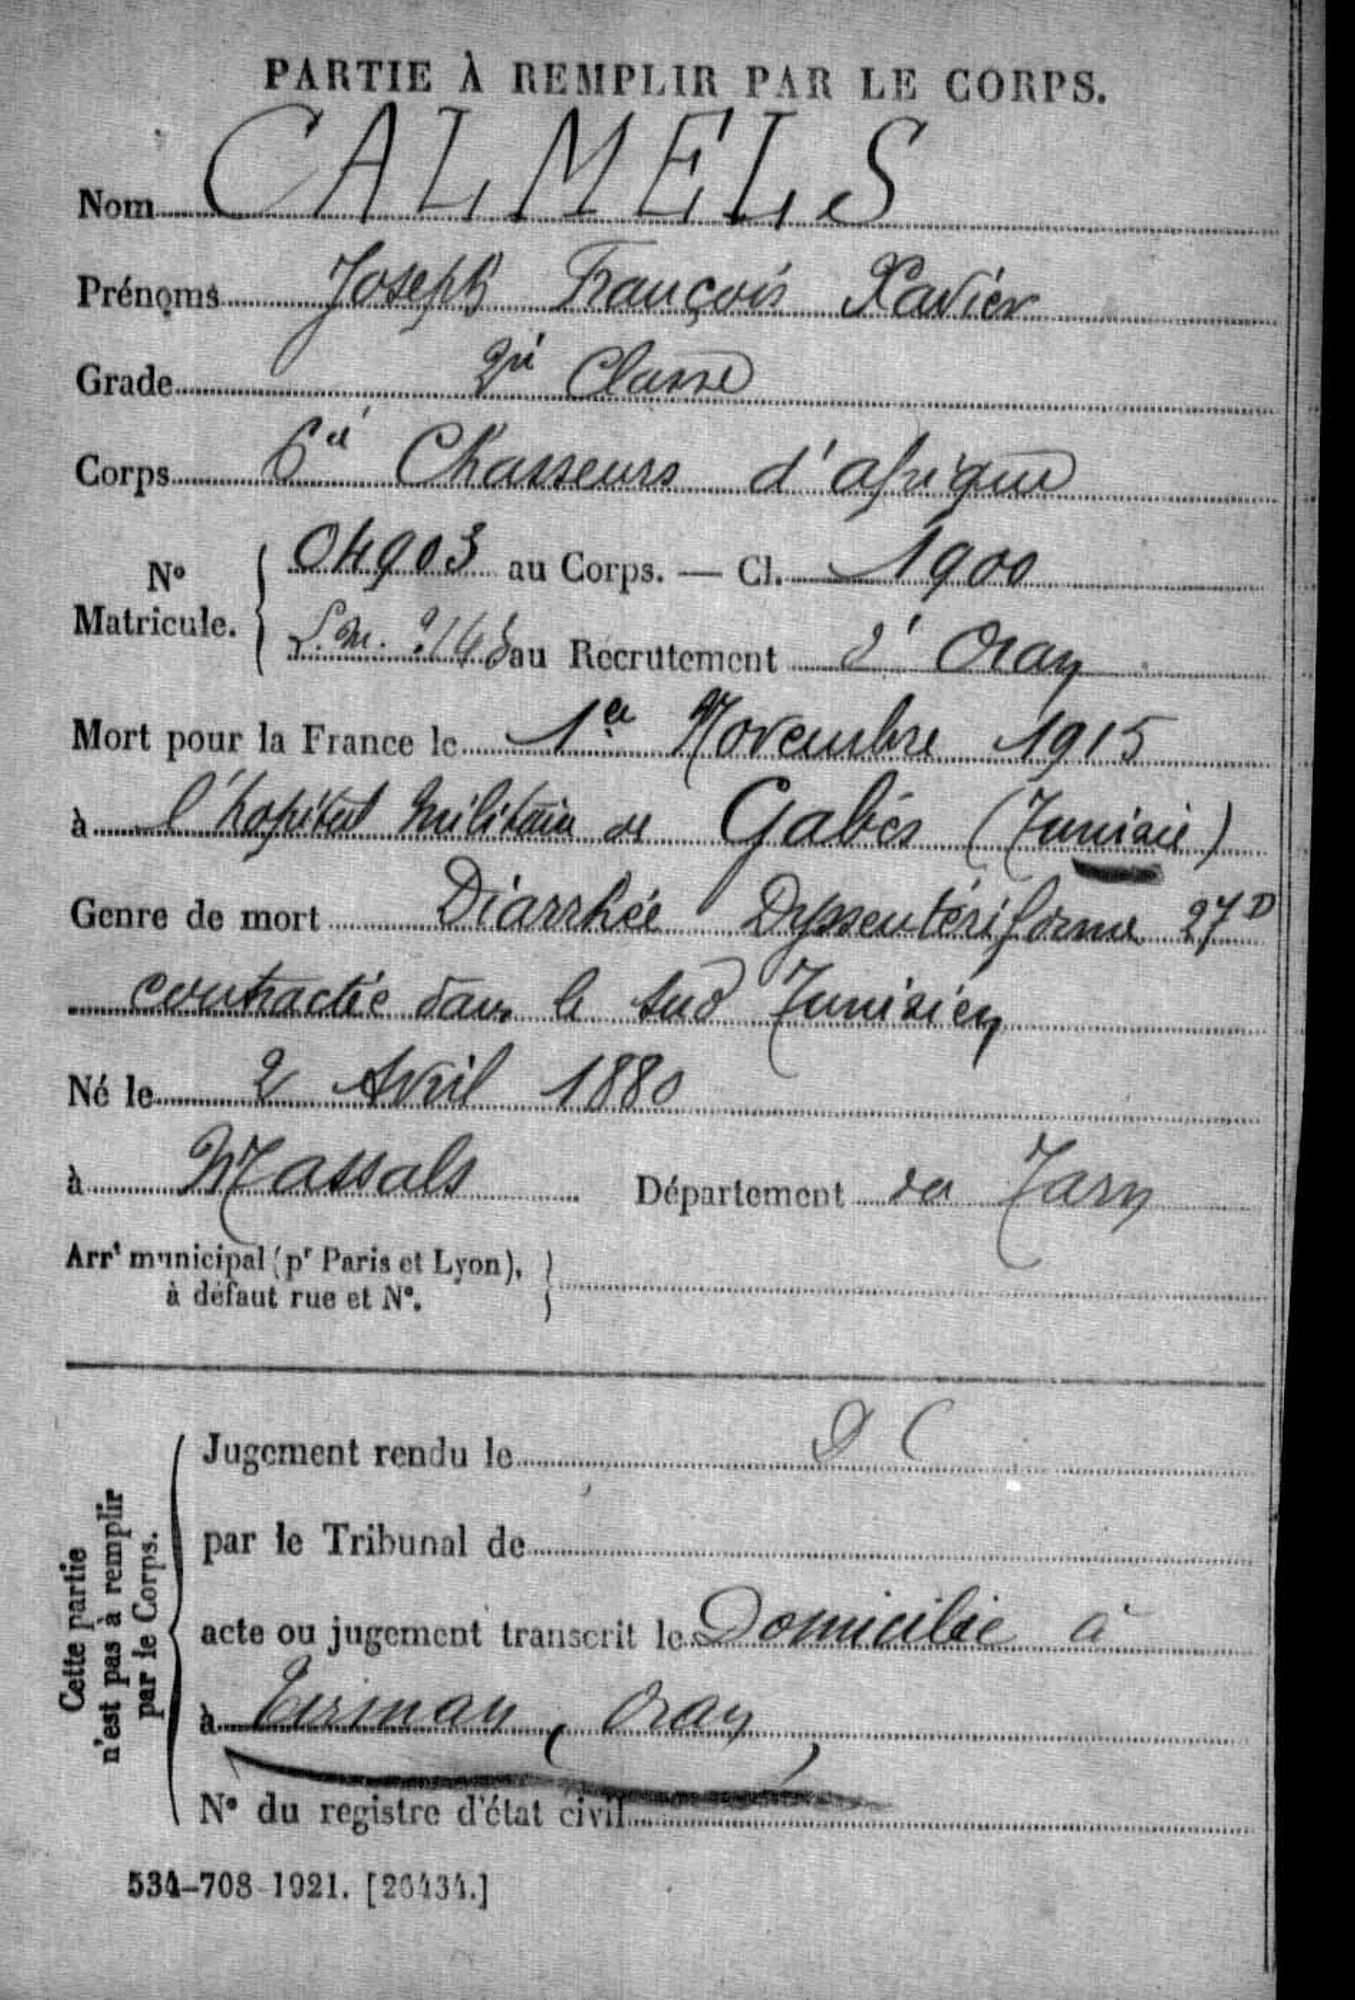 PARTIE À REMPLIR PAR LE CORPS.
Nom CALMELS
Prénoms Joseph François Xavier
Grade 2è Classe
Corps 6è Chasseurs d'afrique
04903 au Corps. — Cl. 1900
No Matricule.
L.M. au Recrutement d'Oran
Mort pour la France le 1er Novembre 1915
à l'hopital Militaire de Gabès (Tunisie)
Genre de mort Diarrhée Dyssentériforme 27D
contractée dans le sud Tunisien
Né le 2 Avril 1880
à Massals Département du Tarn
Arrt municipal (pr Paris et Lyon),
à défaut rue et No.
Cette partie
n'est pas à remplir
par le Corps.
Jugement rendu le D C
par le Tribunal de
acte ou jugement transcrit le Domicilié à
à Tirman, Oran
No du registre d'état civil
534-708-1921. [26434.]